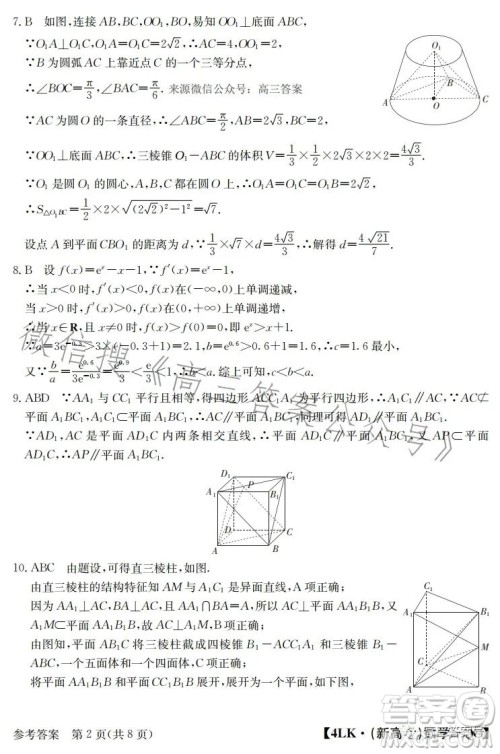 7. B 如图,连接 AB,BC,OO₁,BO,易知 OO₁⊥底面 ABC,
∵O₁A⊥O₁C,O₁A=O₁C=2√2,∴AC=4,OO₁=2.
∵B 为圆弧 AC 上靠近点 C 的一个三等分点,
∴∠BOC=π/3,∠BAC=π/6. 来源微信公众号:高三答案
∵AC 为圆 O 的一条直径,∴∠ABC=π/2,AB=2√3,BC=2.
∵OO₁⊥底面 ABC,∴三棱锥 O₁-ABC 的体积 V=1/3×1/2×2√3×2×2=4√3/3.
∵O₁ 是圆 O₁ 的圆心,A,B,C 都在圆 O 上,∴O₁A=O₁B=O₁C=2√2.
∴S△O₁BC=1/2×2×√((2√2)²-1²)=√7.
设点 A 到平面 CBO₁ 的距离为 d,∵1/3×√7×d=4√3/3,∴解得 d=4√21/7.
O₁
A
B
O
C
8. B 设 f(x)=eˣ-x-1,∵f′(x)=eˣ-1,
∴当 x<0 时,f′(x)<0,f(x)在(-∞,0)上单调递减,
当 x>0 时,f′(x)>0,f(x)在(0,+∞)上单调递增,
∴当 x∈R,且 x≠0 时,f(x)>f(0)=0,即 eˣ>x+1.
∵a=3e⁻⁰·³>3×(-0.3+1)=2.1,b=e⁰·⁶>0.6+1=1.6,∴c=1.6 最小,
又∵b/a=e⁰·⁶/3e⁻⁰·³=e⁰·⁹/3<e/3<1,∴b<a. 综上可知,c<b<a.
9. ABD ∵AA₁ 与 CC₁ 平行且相等,得四边形 ACC₁A₁ 为平行四边形,∴A₁C₁∥AC,∵AC⊄
平面 A₁BC₁,A₁C₁⊂平面 A₁BC₁,∴AC∥平面 A₁BC₁,同理可得 AD₁∥平面 A₁BC₁.
∵AD₁,AC 是平面 ACD₁ 内两条相交直线,∴平面 ACD₁∥平面 A₁BC₁,又 AP⊂平面 ACD₁,∴AP∥平面 A₁BC₁.
D₁
C₁
P
A₁
B₁
D
C
A
B
10. ABC 由题设,可得直三棱柱,如图.
由直三棱柱的结构特征知 AM 与 A₁C₁ 是异面直线,A 项正确;
因为 AA₁⊥AC,BA⊥AC,且 AA₁∩BA=A,所以 AC⊥平面 AA₁B₁B,又
A₁M⊂平面 AA₁B₁B,故 AC⊥A₁M,B 项正确;
由图知,平面 AB₁C 将三棱柱截成四棱锥 B₁-ACC₁A₁ 和三棱锥 B₁-
ABC,一个五面体和一个四面体,C 项正确;
将平面 AA₁B₁B 和平面 CC₁B₁B 展开,展开为一个平面,如图,
C₁
A₁
B₁
C
M
A
B
微信搜《高三答案公众号》
参考答案 第 2 页(共 8 页)
【4LK·(新高